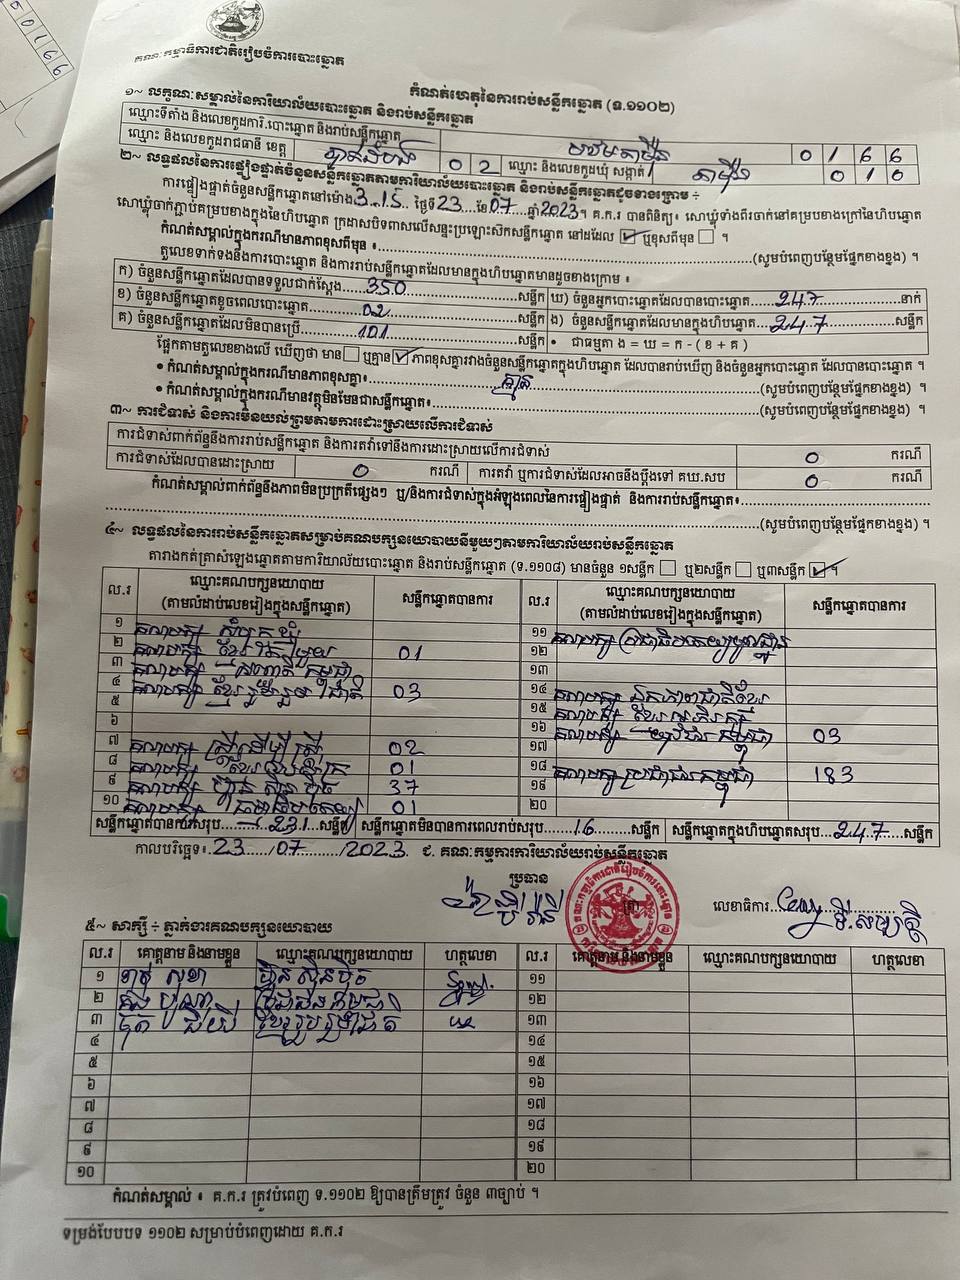 ០០១៦៦
គណៈកម្មាធិការជាតិរៀបចំការបោះឆ្នោត
កំណត់ហេតុនៃការរាប់សន្លឹកឆ្នោត (ទ.១១០២)
១~ លក្ខណៈសម្គាល់នៃការិយាល័យបោះឆ្នោត និងរាប់សន្លឹកឆ្នោត
ឈ្មោះទីតាំង និងលេខកូដការិ.បោះឆ្នោត និងរាប់សន្លឹកឆ្នោត 0 1 6 6
ឈ្មោះ និងលេខកូដរាជធានី ខេត្ត បាត់ដំបង 0 2 ឈ្មោះ និងលេខកូដឃុំ សង្កាត់ 0 1 0
២~ លទ្ធផលនៃការផ្ទៀងផ្ទាត់ចំនួនសន្លឹកឆ្នោតតាមការិយាល័យបោះឆ្នោត និងរាប់សន្លឹកឆ្នោតដូចខាងក្រោម ÷
ការផ្ទៀងផ្ទាត់ចំនួនសន្លឹកឆ្នោតនៅម៉ោង 3.15 ថ្ងៃទី 23 ខែ 07 ឆ្នាំ 2023។ គ.ក.រ បានពិនិត្យ៖ សោឃ្លុំទាំងពីរចាក់នៅគម្របខាងក្រៅនៃហិបឆ្នោត
សោឃ្លុំចាក់ភ្ជាប់គម្របខាងក្នុងនៃហិបឆ្នោត ក្រដាសបិទពាសលើសន្ទះប្រឡោះសិកសន្លឹកឆ្នោត នៅដដែល ☑ ឬខុសពីមុន ☐ ។
កំណត់សម្គាល់ក្នុងករណីមានភាពខុសពីមុន ៖ (សូមបំពេញបន្ថែមផ្នែកខាងខ្នង) ។
តួលេខទាក់ទងនឹងការបោះឆ្នោត និងការរាប់សន្លឹកឆ្នោតដែលមានក្នុងហិបឆ្នោតមានដូចខាងក្រោម ៖
ក) ចំនួនសន្លឹកឆ្នោតដែលបានទទួលជាក់ស្តែង 350 សន្លឹក ឃ) ចំនួនអ្នកបោះឆ្នោតដែលបានបោះឆ្នោត 247 នាក់
ខ) ចំនួនសន្លឹកឆ្នោតខូចពេលបោះឆ្នោត 02 សន្លឹក ង) ចំនួនសន្លឹកឆ្នោតដែលមានក្នុងហិបឆ្នោត 247 សន្លឹក
គ) ចំនួនសន្លឹកឆ្នោតដែលមិនបានប្រើ 101 សន្លឹក • ជាធម្មតា ង = ឃ = ក - ( ខ + គ )
ផ្អែកតាមតួលេខខាងលើ ឃើញថា មាន ☐ ឬគ្មាន ☑ ភាពខុសគ្នារវាងចំនួនសន្លឹកឆ្នោតក្នុងហិបឆ្នោត ដែលបានរាប់ឃើញ និងចំនួនអ្នកបោះឆ្នោត ដែលបានបោះឆ្នោត ។
• កំណត់សម្គាល់ក្នុងករណីមានភាពខុសគ្នា៖ គ្មាន (សូមបំពេញបន្ថែមផ្នែកខាងខ្នង) ។
• កំណត់សម្គាល់ក្នុងករណីមានវត្ថុមិនមែនជាសន្លឹកឆ្នោត៖ (សូមបំពេញបន្ថែមផ្នែកខាងខ្នង) ។
៣~ ការជំទាស់ និងការមិនយល់ព្រមតាមការដោះស្រាយលើការជំទាស់
ការជំទាស់ពាក់ព័ន្ធនឹងការរាប់សន្លឹកឆ្នោត និងការតវ៉ាទៅនឹងការដោះស្រាយលើការជំទាស់ 0 ករណី
ការជំទាស់ដែលបានដោះស្រាយ 0 ករណី ការតវ៉ា ឬការជំទាស់ដែលអាចនឹងប្តឹងទៅ គឃ.សប 0 ករណី
កំណត់សម្គាល់ពាក់ព័ន្ធនឹងភាពមិនប្រក្រតីផ្សេងៗ ឬ/និងការជំទាស់ក្នុងអំឡុងពេលនៃការផ្ទៀងផ្ទាត់ និងការរាប់សន្លឹកឆ្នោត៖
(សូមបំពេញបន្ថែមផ្នែកខាងខ្នង) ។
៤~ លទ្ធផលនៃការរាប់សន្លឹកឆ្នោតសម្រាប់គណបក្សនយោបាយនីមួយៗតាមការិយាល័យរាប់សន្លឹកឆ្នោត
តារាងកត់ត្រាសំឡេងឆ្នោតតាមការិយាល័យបោះឆ្នោត និងរាប់សន្លឹកឆ្នោត (ទ.១១០៨) មានចំនួន ១សន្លឹក ☐ ឬ២សន្លឹក ☐ ឬ៣សន្លឹក ☑ ។
ល.រ ឈ្មោះគណបក្សនយោបាយ (តាមលំដាប់លេខរៀងក្នុងសន្លឹកឆ្នោត) សន្លឹកឆ្នោតបានការ ល.រ ឈ្មោះគណបក្សនយោបាយ (តាមលំដាប់លេខរៀងក្នុងសន្លឹកឆ្នោត) សន្លឹកឆ្នោតបានការ
១ គណបក្ស សំបុកឃ្មុំ ១១ គណបក្ស ប្រជាធិបតេយ្យមូលដ្ឋាន
២ គណបក្ស ខ្មែរតែមួយ 01 ១២
៣ គណបក្ស សញ្ជាតិកម្ពុជា ១៣
៤ គណបក្ស ខ្មែររួបរួមជាតិ 03 ១៤ គណបក្ស ឯកភាពជាតិខ្មែរ
៥ ១៥ គណបក្ស ខ្មែរអភិរក្ស
៦ ១៦ គណបក្ស កម្ពុជា 03
៧ គណបក្ស ស្ត្រីដើម្បីស្ត្រី 02 ១៧
៨ គណបក្ស 01 ១៨ គណបក្ស ប្រជាជនកម្ពុជា 183
៩ គណបក្ស ហ៊្វុនស៊ិនប៉ិច 37 ១៩
១០ គណបក្ស ធម្មាធិបតេយ្យ 01 ២០
សន្លឹកឆ្នោតបានការសរុប 231 សន្លឹក សន្លឹកឆ្នោតមិនបានការពេលរាប់សរុប 16 សន្លឹក សន្លឹកឆ្នោតក្នុងហិបឆ្នោតសរុប 247 សន្លឹក
កាលបរិច្ឆេទ៖ 23/07/2023 ជ. គណៈកម្មការការិយាល័យរាប់សន្លឹកឆ្នោត
ប្រធាន ត្រា លេខាធិការ
៥~ សាក្សី ÷ ភ្នាក់ងារគណបក្សនយោបាយ
ល.រ គោត្តនាម និងនាមខ្លួន ឈ្មោះគណបក្សនយោបាយ ហត្ថលេខា ល.រ គោត្តនាម និងនាមខ្លួន ឈ្មោះគណបក្សនយោបាយ ហត្ថលេខា
១ សុខា ហ៊្វុនស៊ិនប៉ិច ១១
២ ប្រជាជនកម្ពុជា ១២
៣ ខ្មែររួបរួមជាតិ ១៣
៤ ១៤
៥ ១៥
៦ ១៦
៧ ១៧
៨ ១៨
៩ ១៩
១០ ២០
កំណត់សម្គាល់ ៖ គ.ក.រ ត្រូវបំពេញ ទ.១១០២ ឱ្យបានត្រឹមត្រូវ ចំនួន ៣ច្បាប់ ។
ទម្រង់បែបបទ ១១០២ សម្រាប់បំពេញដោយ គ.ក.រ